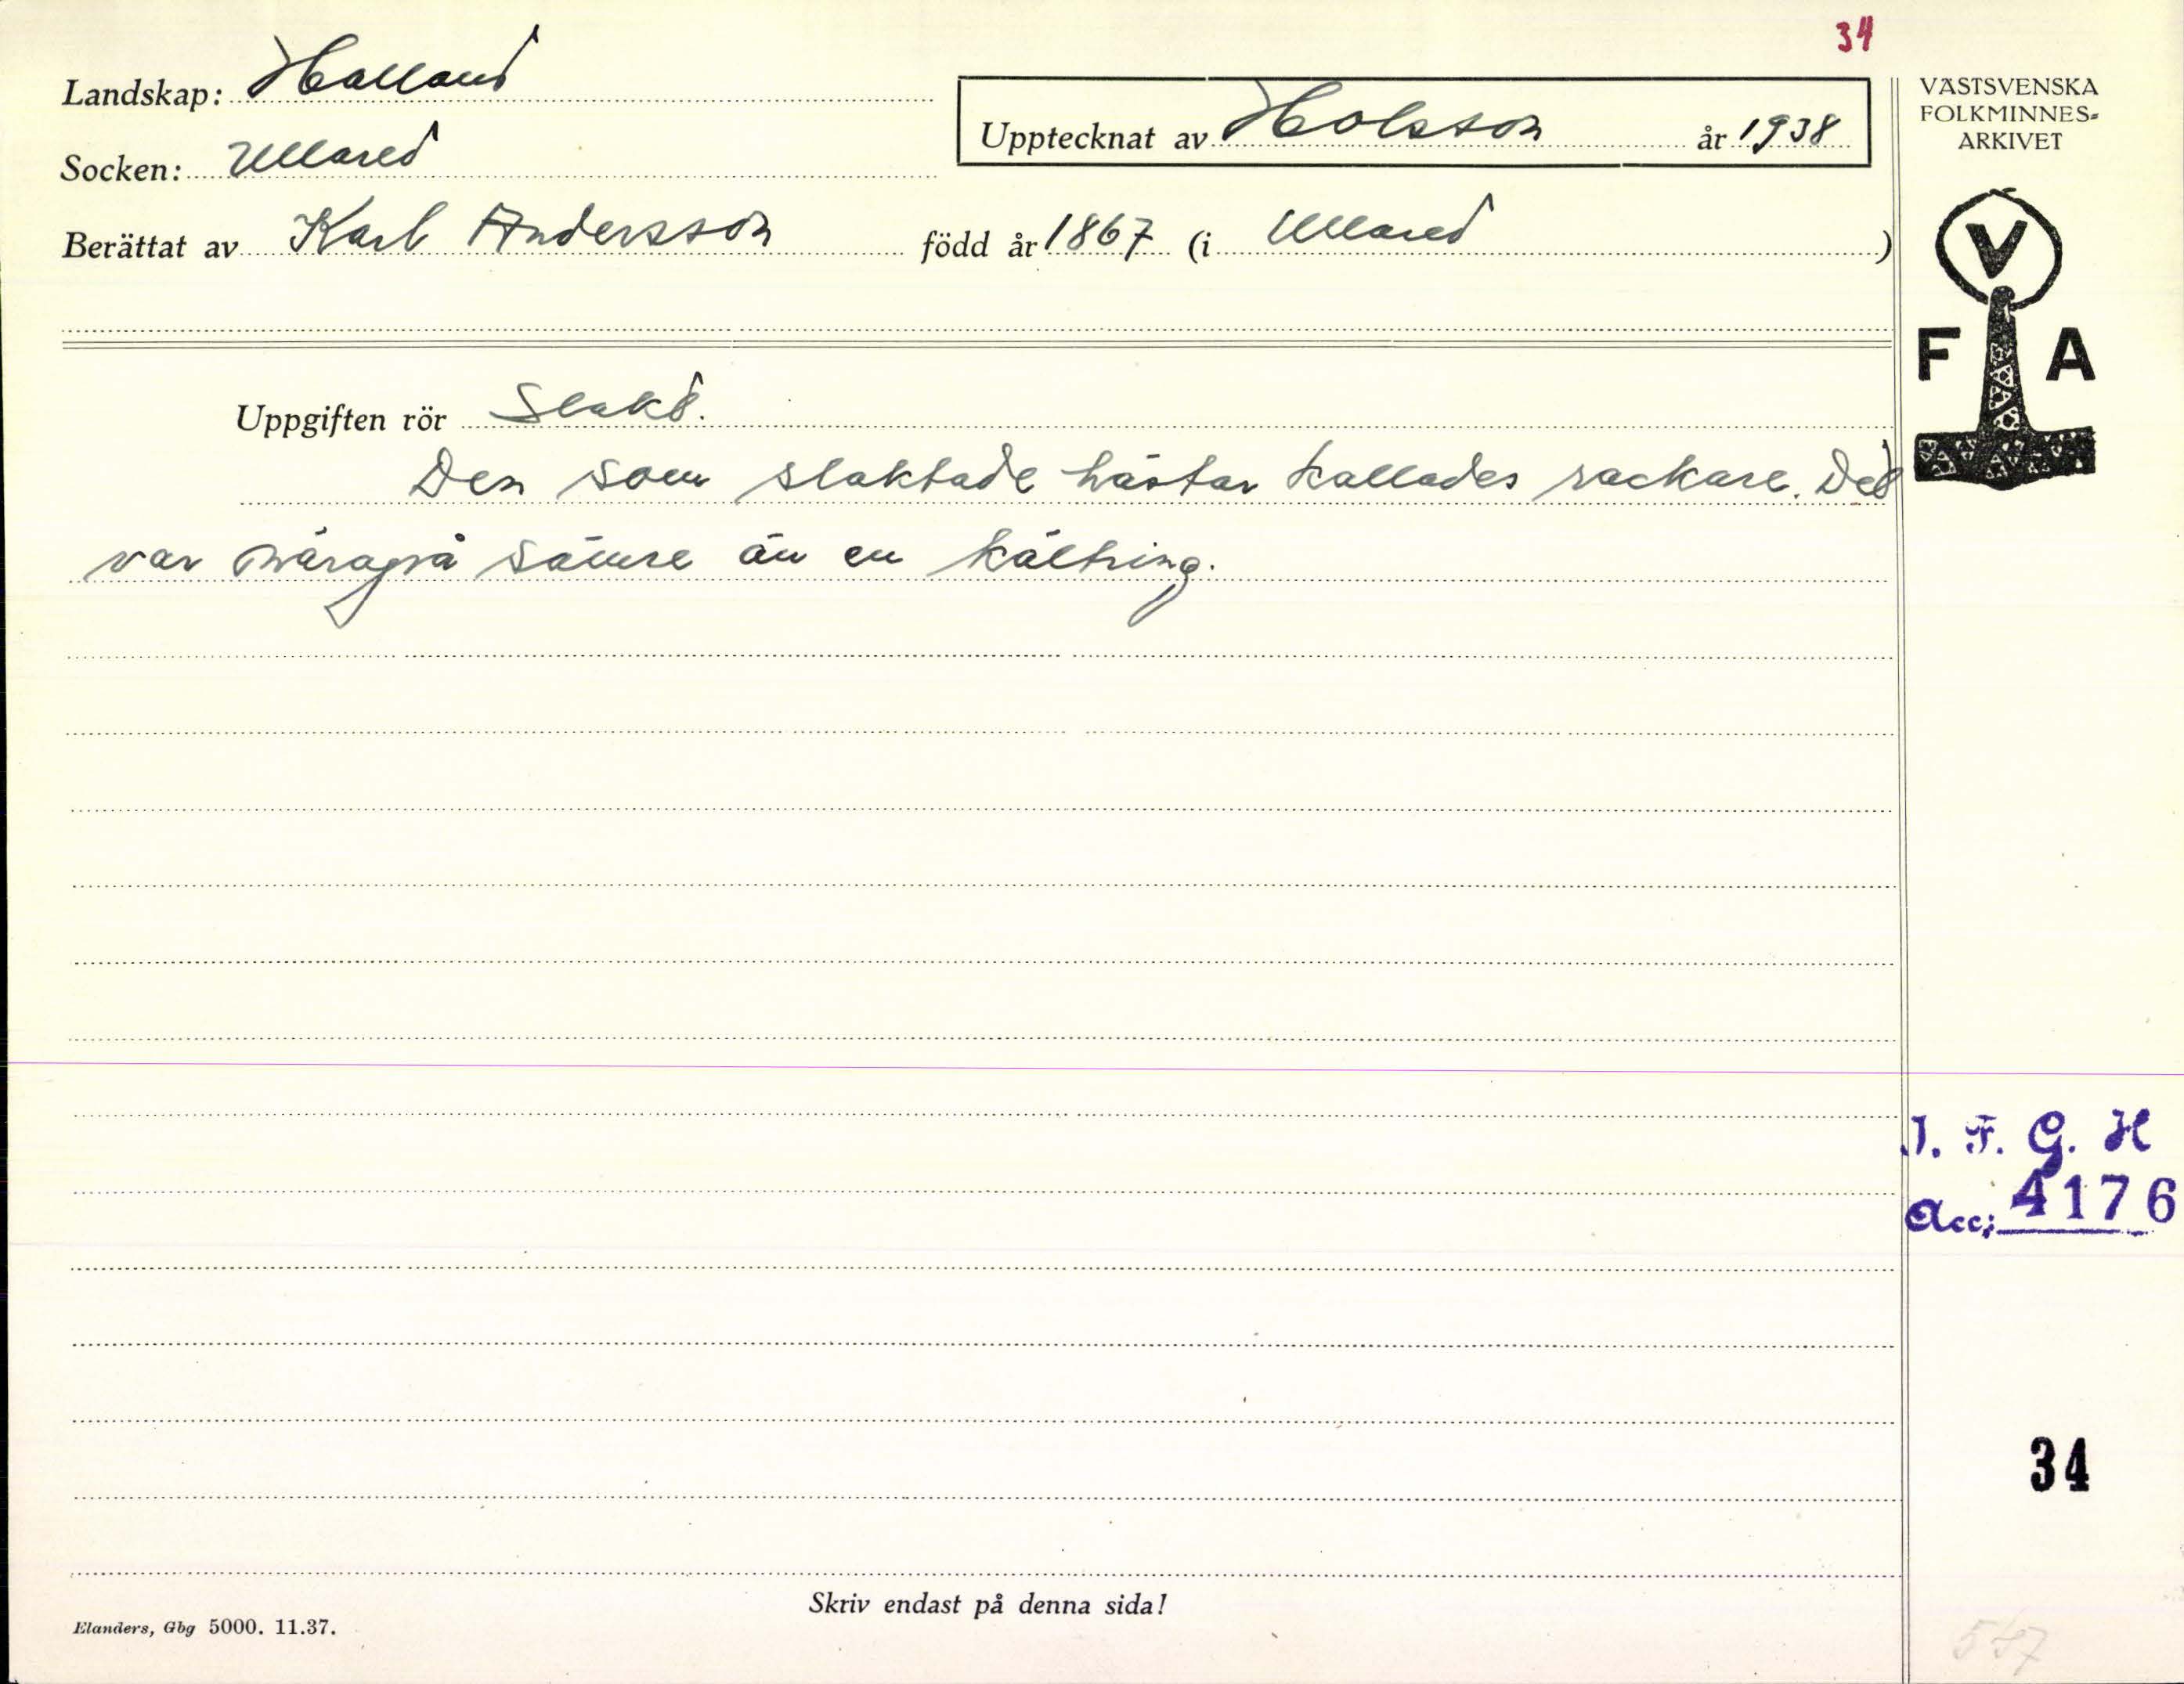 34
Landskap: Halland
Upptecknat av Holsson år 1938
VÄSTSVENSKA
FOLKMINNES=
ARKIVET
Socken: Ullared
Berättat av Karl Andersson född år 1867 (i Ullared)
V
F A
Uppgiften rör Slakt.
Den som slaktade hästar kallades rackare. Det
var sämre än en kältring.
I. F. G. H
Acc: 4176
34
Skriv endast på denna sida!
Elanders, Gbg 5000. 11.37.